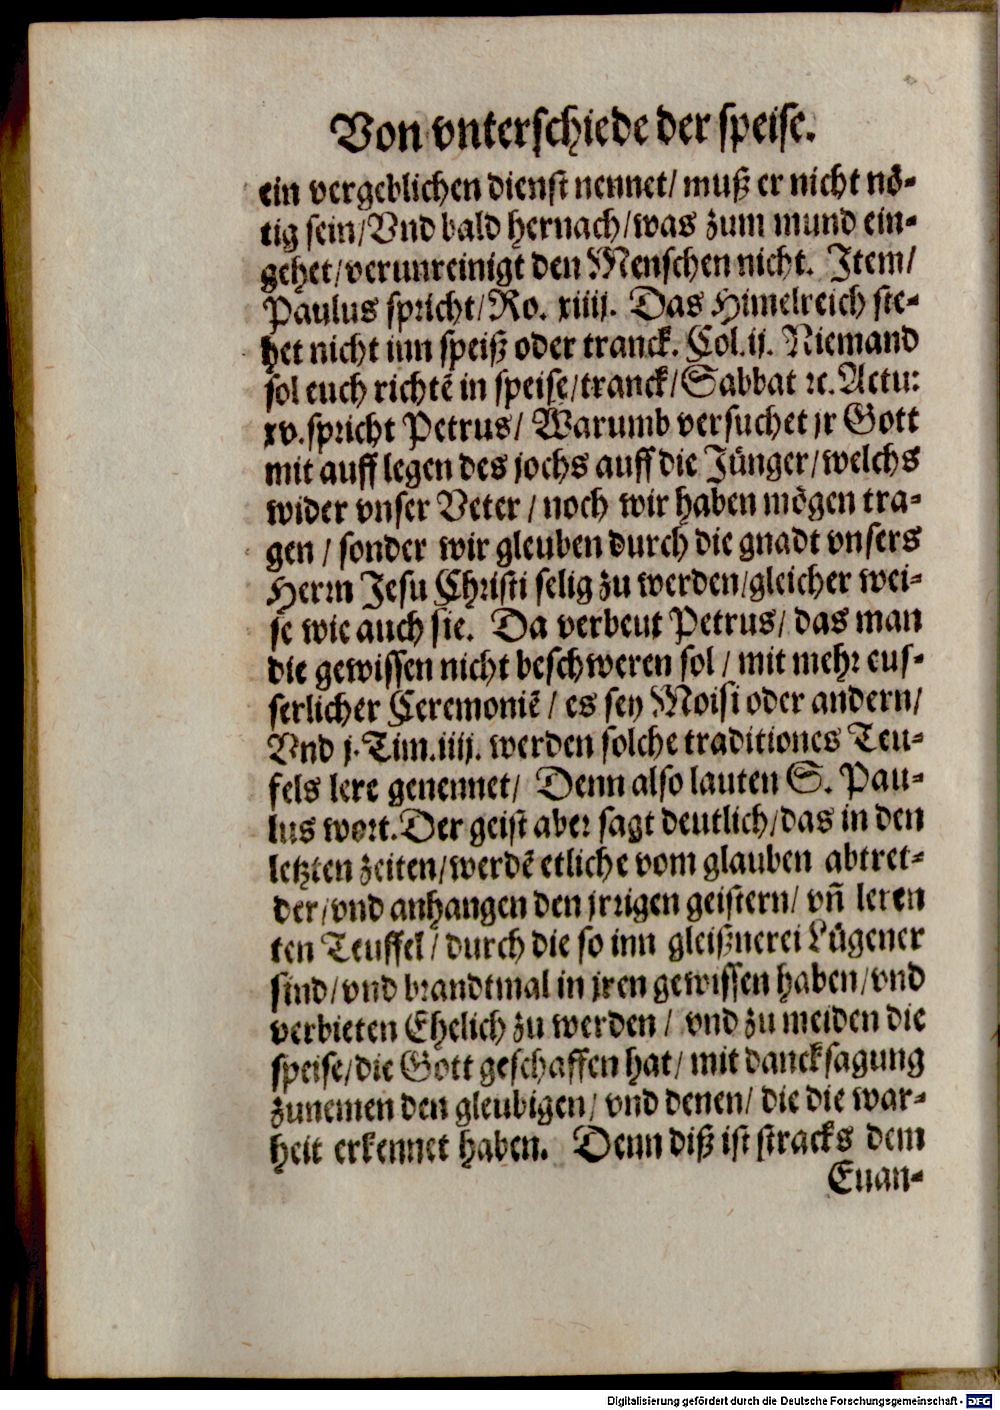 Von vnterschiede der speise.
ein vergeblichen dienst nennet/ muß er nicht nö-
tig sein/Vnd bald hernach/was zum mund ein-
gehet/verunreinigt den Menschen nicht. Item/
Paulus spricht/Ro. xiiij. Das Himelreich ste-
het nicht inn speiß oder tranck. Col.ij. Niemand
sol euch richtẽ in speise/tranck/Sabbat ꝛc. Actu:
xv.spricht Petrus/ Warumb versuchet jr Gott
mit auff legen des jochs auff die Jünger/welchs
wider vnser Veter / noch wir haben mögen tra-
gen / sonder wir gleuben durch die gnadt vnsers
Herrn Jesu Christi selig zu werden/gleicher wei-
se wie auch sie. Da verbeut Petrus/ das man
die gewissen nicht beschweren sol / mit mehr eus-
serlicher Ceremoniẽ / es sey Moisi oder andern/
Vnd j.Tim.iiij. werden solche traditiones Teu-
fels lere genennet/ Denn also lauten S. Pau-
lus wort.Der geist aber sagt deutlich/das in den
letzten zeiten/werdẽ etliche vom glauben abtret-
der/vnd anhangen den jrrigen geistern/ vñ leren
ten Teuffel/ durch die so inn gleißnerei Lügener
sind/vnd brandtmal in jren gewissen haben/vnd
verbieten Ehelich zu werden / vnd zu meiden die
speise/die Gott geschaffen hat/ mit dancksagung
zunemen den gleubigen/ vnd denen/ die die war-
heit erkennet haben. Denn diß ist stracks dem
Euan-
Digitalisierung gefördert durch die Deutsche Forschungsgemeinschaft - DFG